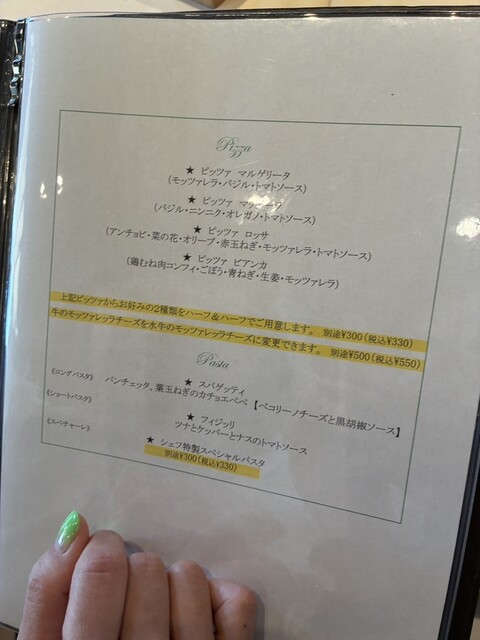 Pizza
★ ピッツァ マルゲリータ
(モッツァレラ・バジル・トマトソース)
★ ピッツァ マリナーラ
(バジル・ニンニク・オレガノ・トマトソース)
★ ピッツァ ロッサ
(アンチョビ・菜の花・オリーブ・赤玉ねぎ・モッツァレラ・トマトソース)
★ ピッツァ ビアンカ
(鶏むね肉コンフィ・ごぼう・青ねぎ・生姜・モッツァレラ)
上記ピッツァからお好みの2種類をハーフ&ハーフでご用意します。 別途¥300(税込¥330)
牛のモッツァレッラチーズを水牛のモッツァレッラチーズに変更できます。 別途¥500(税込¥550)
Pasta
《ロングパスタ》 ★ スパゲッティ
パンチェッタ、葉玉ねぎのカチョエペペ 【ペコリーノチーズと黒胡椒ソース】
《ショートパスタ》 ★ フィジッリ
ツナとケッパーとナスのトマトソース
《スペチャーレ》 ★ シェフ特製スペシャルパスタ
別途¥300(税込¥330)